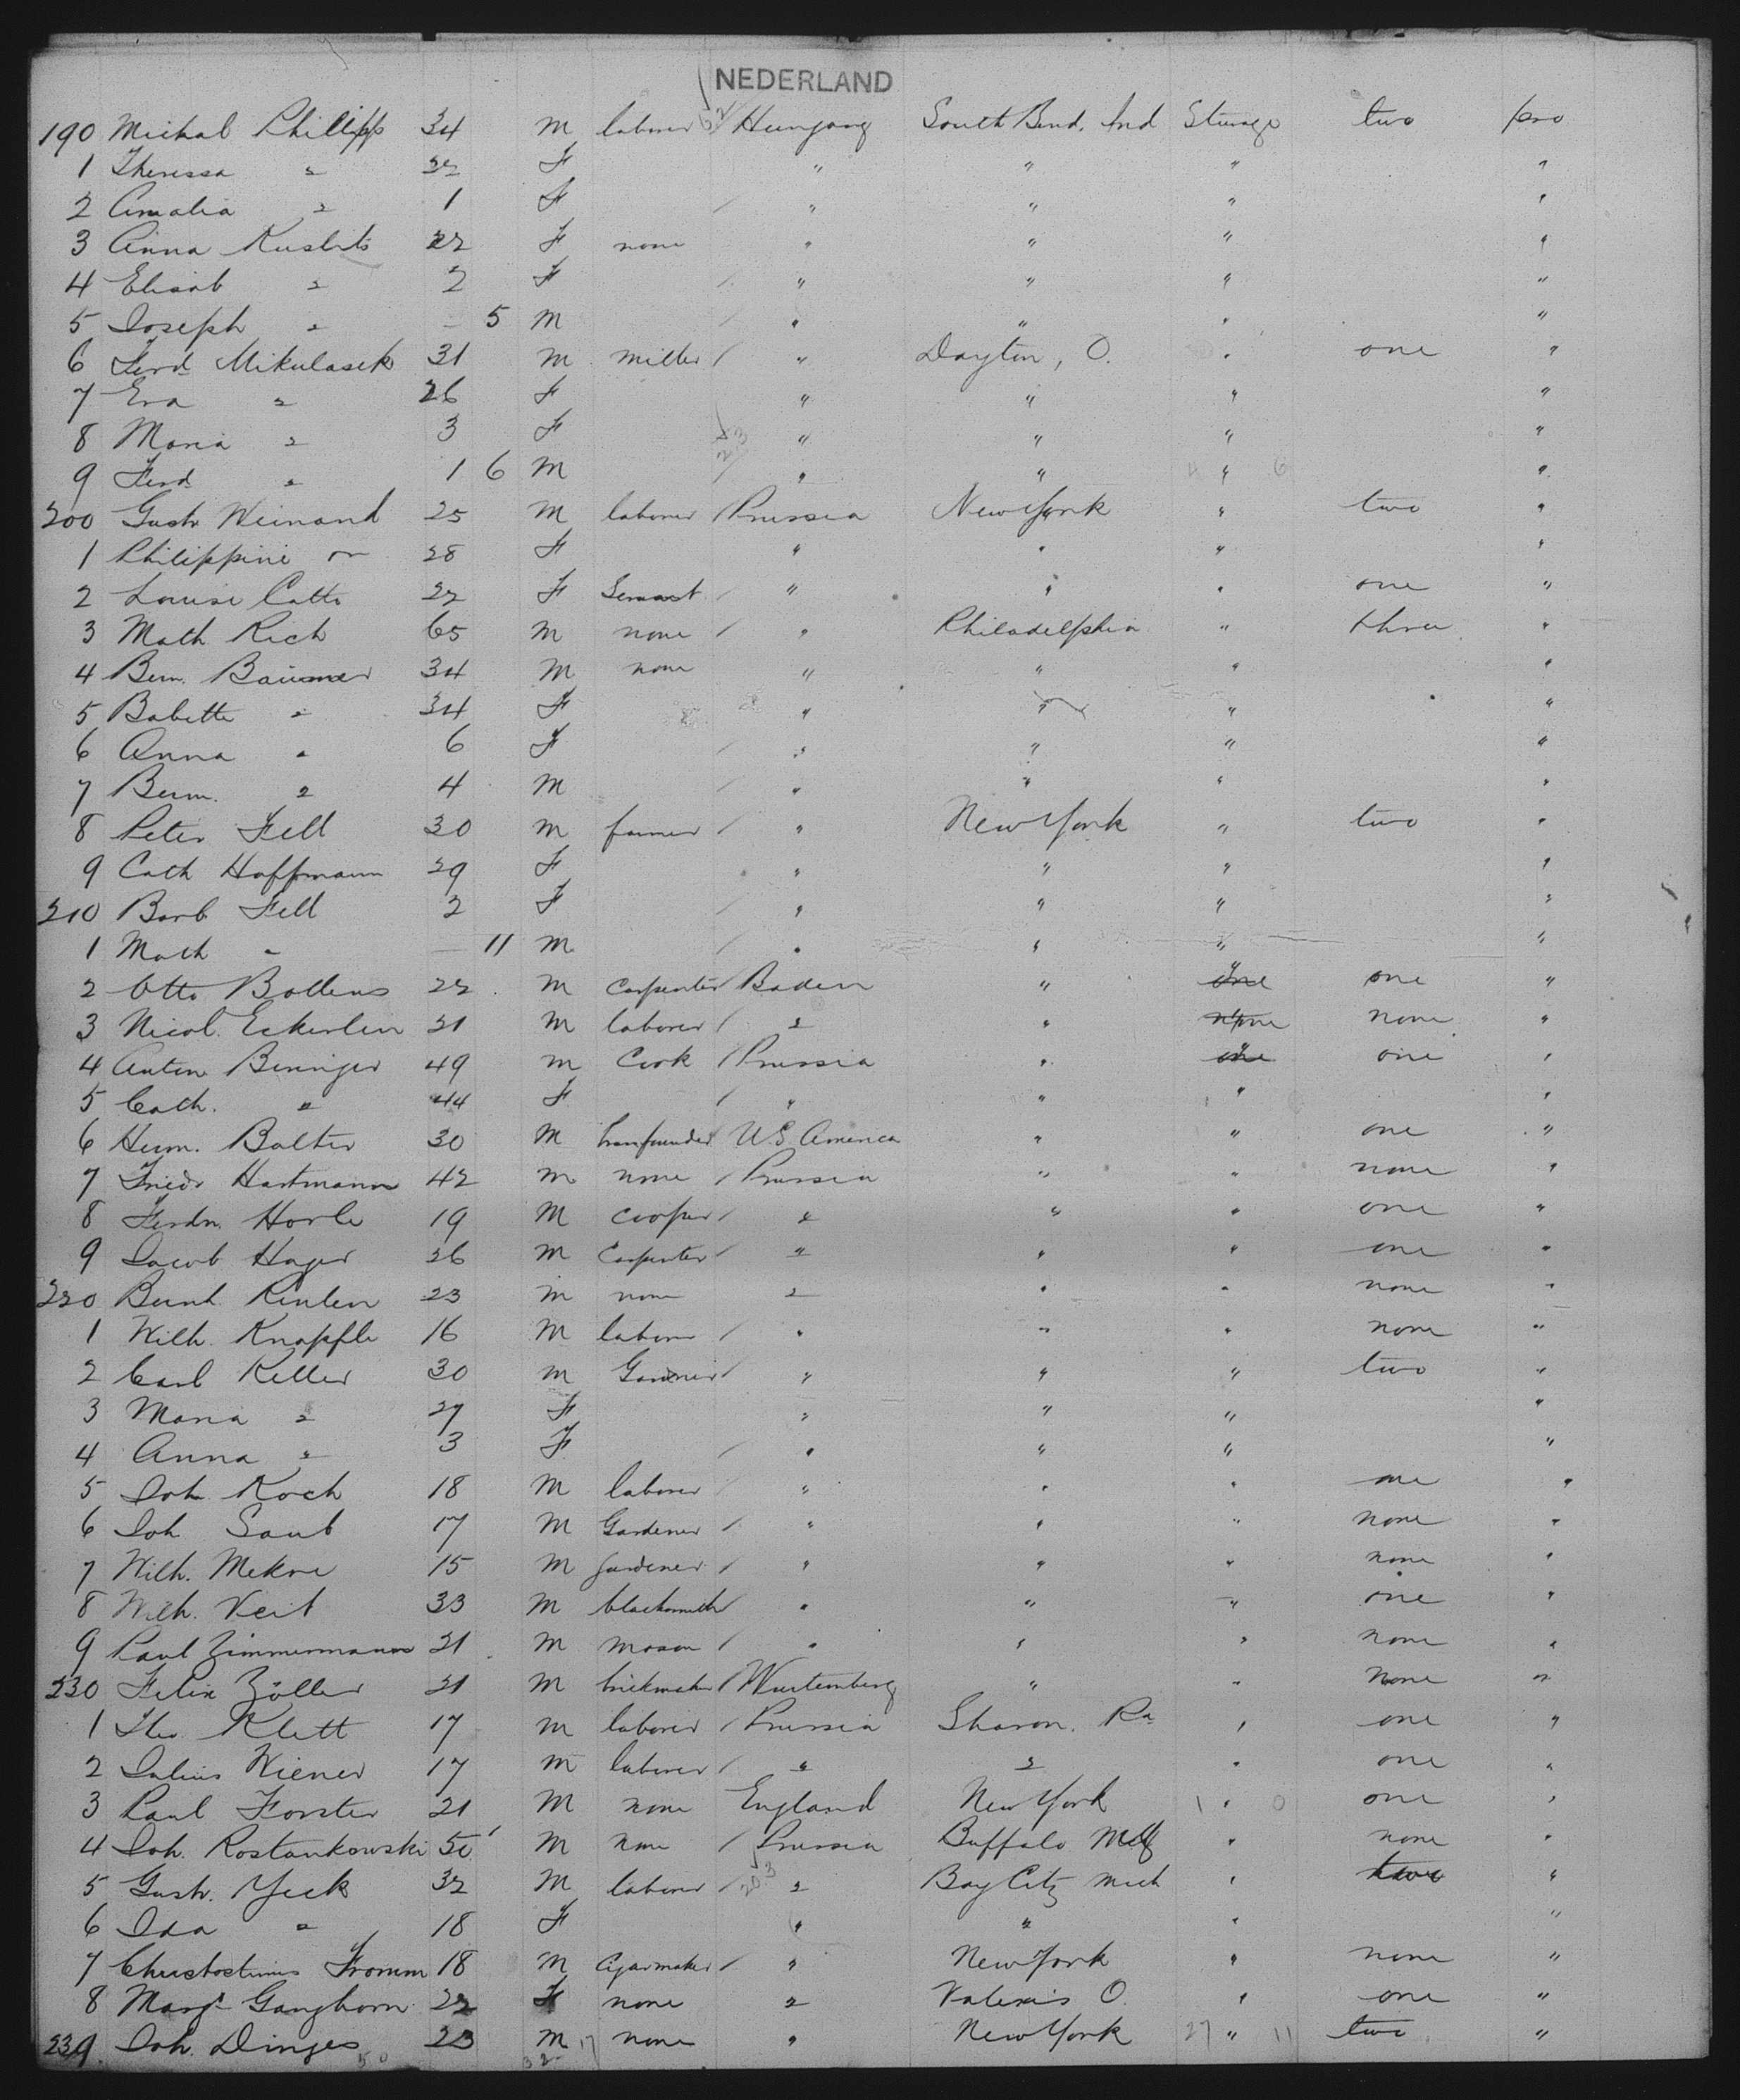 NEDERLAND
190 Michal Phillipp 34 M laborer Hungary South Bend, Ind Sterage two pro
1 Theressa " 22 F " " " "
2 Amalia " 1 F " " " "
3 Anna 22 F none " " " "
4 Elisab " 2 F " " " "
5 Joseph " — 5 M " " " "
6 Ferd Mikulasek 31 M miller " Dayton, O. " one "
7 Eva " 26 F " " " "
8 Maria " 3 F " " " "
9 Ferd " 1 6 M " " " "
200 Gust Weinand 25 M laborer Prussia New York " two "
1 Philippine " 28 F " " " "
2 Louise Catto 22 F Servant " " " one "
3 Math Rich 65 M none " Philadelphia " three "
4 Bern. Baumer 34 M none " " " "
5 Babette " 34 F " " " "
6 Anna " 6 F " " " "
7 Bern. " 4 M " " " "
8 Peter Fell 30 M farmer " New York " two "
9 Cath Hoffmann 29 F " " " "
210 Barb Fell 2 F " " " "
1 Math " — 11 M " " " "
2 Otto Bollens 22 M carpenter Baden " " one "
3 Nicol. Eckerlin 21 M laborer " " " none "
4 Anton Beninger 49 M Cook Prussia " " one "
5 Cath. " 44 F " " " "
6 Herm. Balter 30 M U.S. America " " one "
7 Friedr Hartmann 42 M none Prussia " " none "
8 Ferdn. Horle 19 M cooper " " " one "
9 Jacob Hager 26 M Carpenter " " " one "
220 Bernh. 23 M none " " " none "
1 Wilh. Knapfle 16 M laborer " " " none "
2 Carl Keller 30 M " " " two "
3 Maria " 27 F " " " "
4 Anna " 3 F " " " "
5 Joh. Koch 18 M laborer " " " one "
6 Joh Saub 17 M Gardener " " " none "
7 Wilh. 15 M gardener " " " none "
8 Wilh. Veit 33 M blacksmith " " " one "
9 Paul Zimmermann 21 M mason " " " none "
230 Felix Zöller 21 M brickmaker Wurtemberg " " none "
1 Theo. Klett 17 M laborer Prussia Sharon. Pa " one "
2 Julius Wiener 17 M laborer " " " one "
3 Paul Forster 21 M none England New York " one "
4 Joh. Rostankowski 50 M none Prussia Buffalo " none "
5 Gust. Yeck 32 M laborer " Bay City Mich " two "
6 Ida " 18 F " " " "
7 Fromm 18 M Cigarmaker " New York " none "
8 Margt Ganghorn 22 F none " O. " one "
239 Joh. Dinges 23 M none " New York " two "